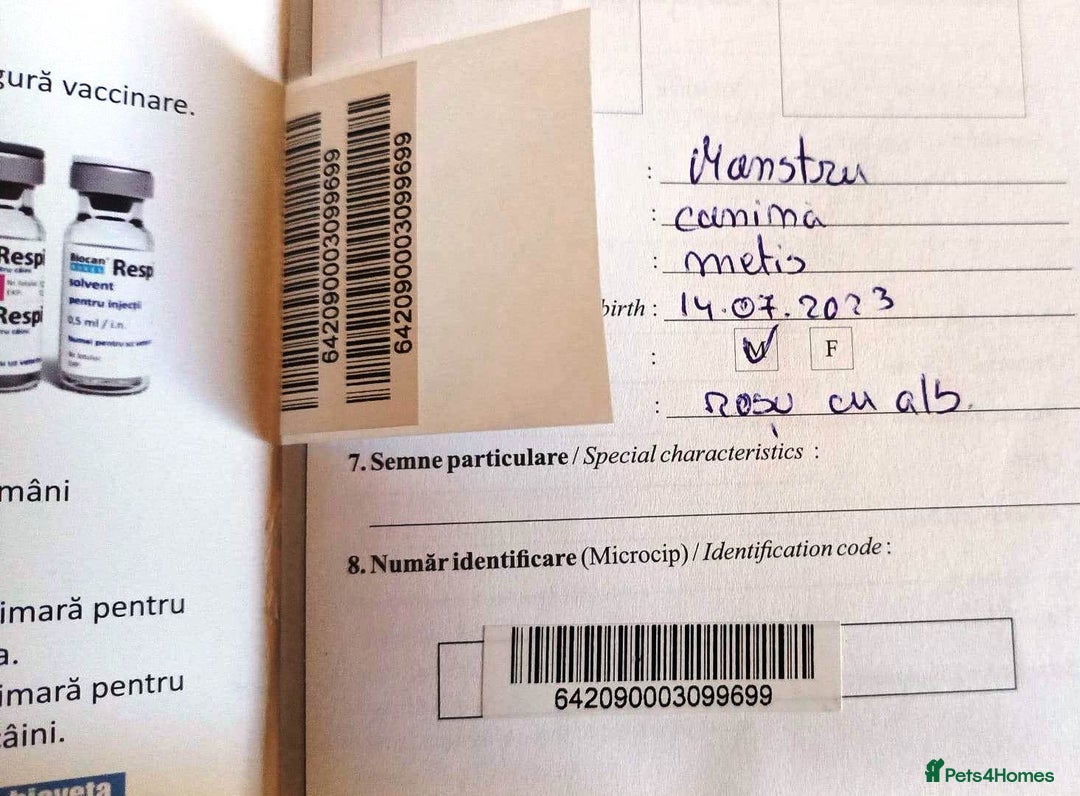 gură vaccinare.
Respi
Respi
Biocan
Resp
solvent
pentru injecti
0,5 ml / i.n.
mâni
imară pentru
a.
imară pentru
câini.
bioveta
642090003099699
642090003099699
: Monstru
: canina
: metis
birth : 14.07.2023
: M F
: Roșu cu alb.
7. Semne particulare / Special characteristics :
8. Număr identificare (Microcip) / Identification code :
642090003099699
Pets4Homes